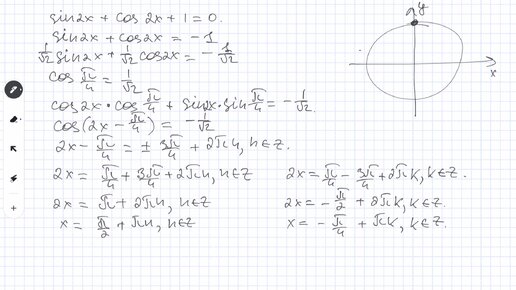 sin2x + cos 2x + 1 = 0.
sin2x + cos2x = - 1
1/√2 sin2x + 1/√2 cos2x = - 1/√2
cos π/4 = 1/√2
cos2x · cos π/4 + sin2x · sin π/4 = - 1/√2.
cos(2x - π/4) = - 1/√2
2x - π/4 = ± 3π/4 + 2πn, n∈Z.
2x = π/4 + 3π/4 + 2πn, n∈Z
2x = π/4 - 3π/4 + 2πk, k∈Z.
2x = π + 2πn, n∈Z
2x = - π/2 + 2πk, k∈Z.
x = π/2 + πn, n∈Z
x = - π/4 + πk, k∈Z.
y
x